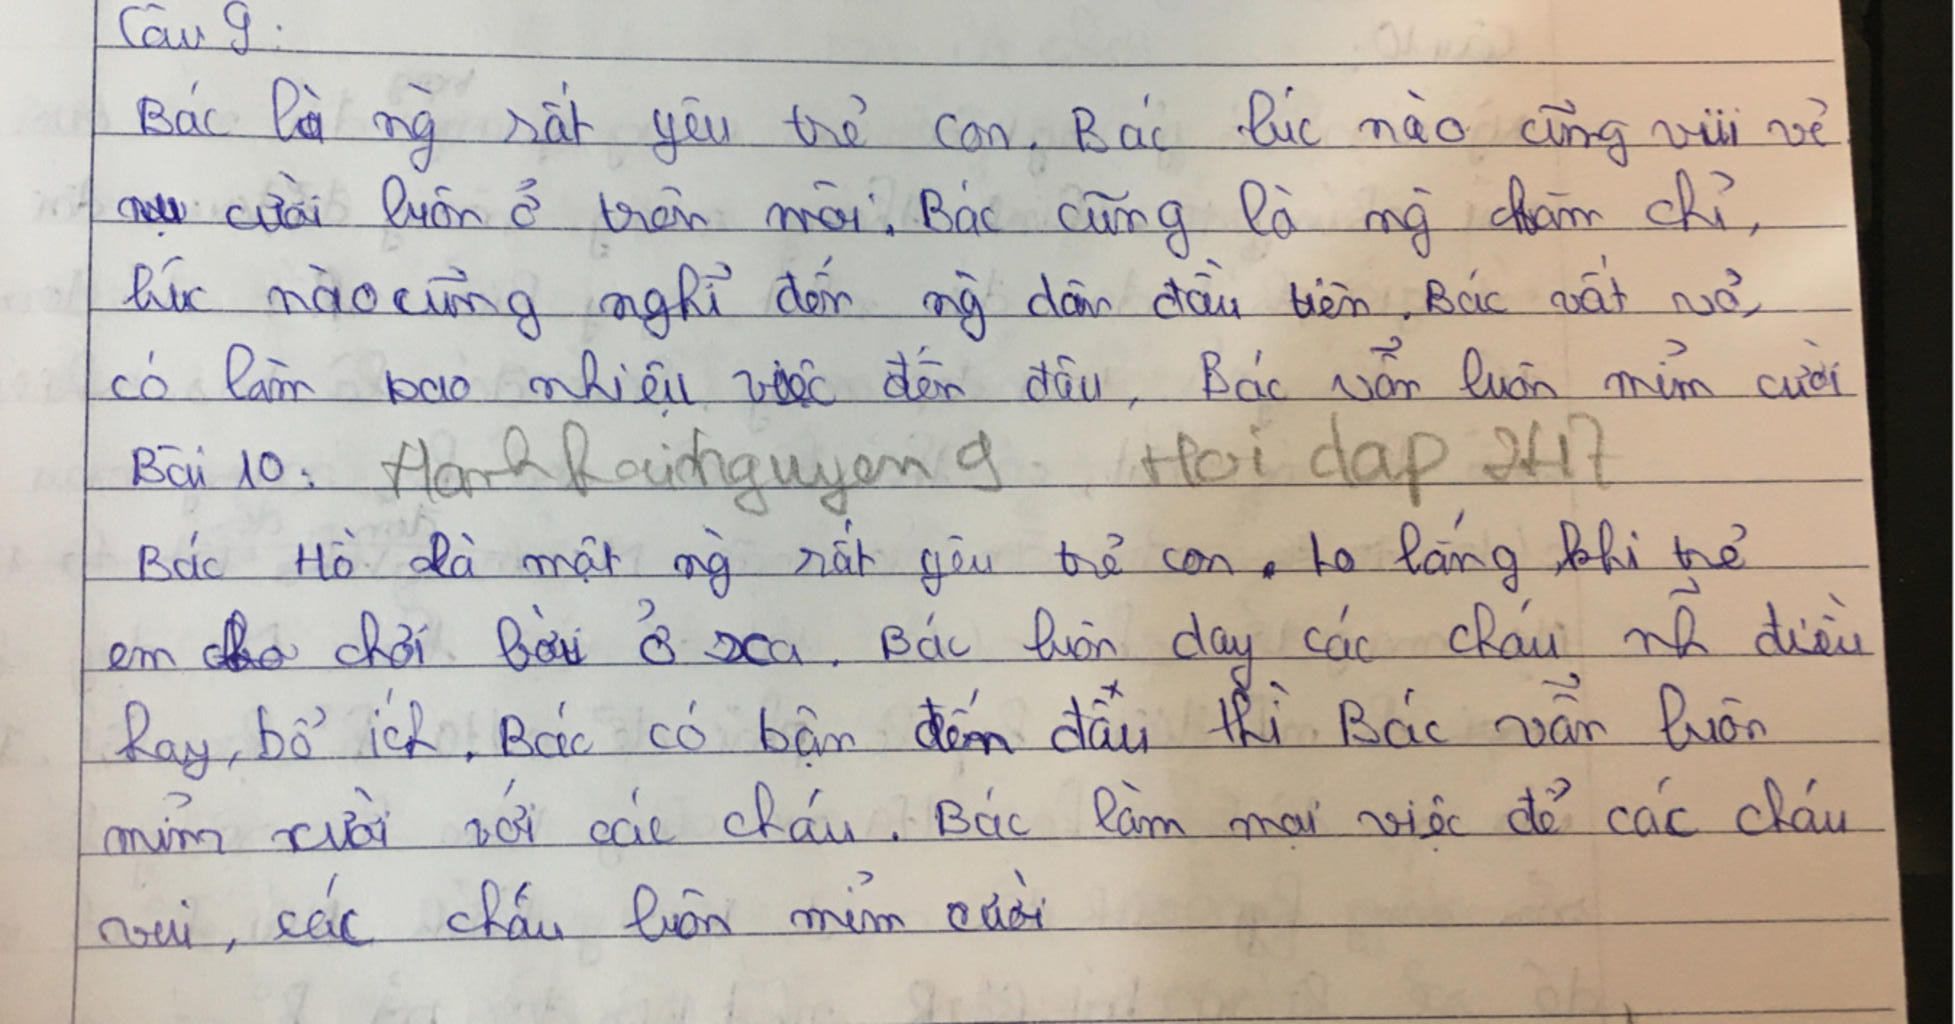 Câu 9:
Bác là ng̀ rất yêu trẻ con. Bác lúc nào cũng vui vẻ
cười luôn ở trên môi. Bác cũng là ng̀ chăm chỉ,
lúc nào cũng nghĩ đến ng̀ dân đầu tiên. Bác vất vả,
có làm bao nhiêu việc đến đâu, Bác vẫn luôn mỉm cười
Bài 10: Hanhkainguyen9 Hoi dap 247
Bác Hồ là một ng̀ rất yêu trẻ con. lo lắng khi trẻ
em chơi bời ở xa. Bác luôn dạy các cháu nh̃ điều
hay, bổ ích. Bác có bận đến đâu thì Bác vẫn luôn
mỉm cười với các cháu. Bác làm mọi việc để các cháu
vui, các cháu luôn mỉm cười